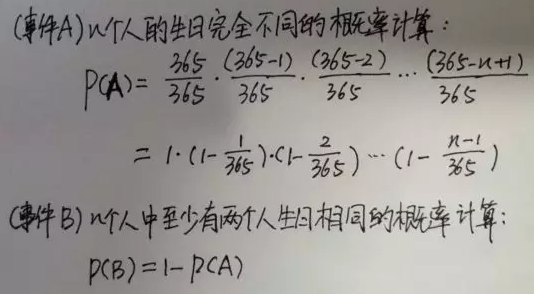 (事件A) n个人的生日完全不同的概率计算：
P(A) = 365/365 · (365-1)/365 · (365-2)/365 ··· (365-n+1)/365
= 1·(1-1/365)·(1-2/365)···(1-n-1/365)
(事件B) n个人中至少有两个人生日相同的概率计算：
P(B) = 1-P(A)